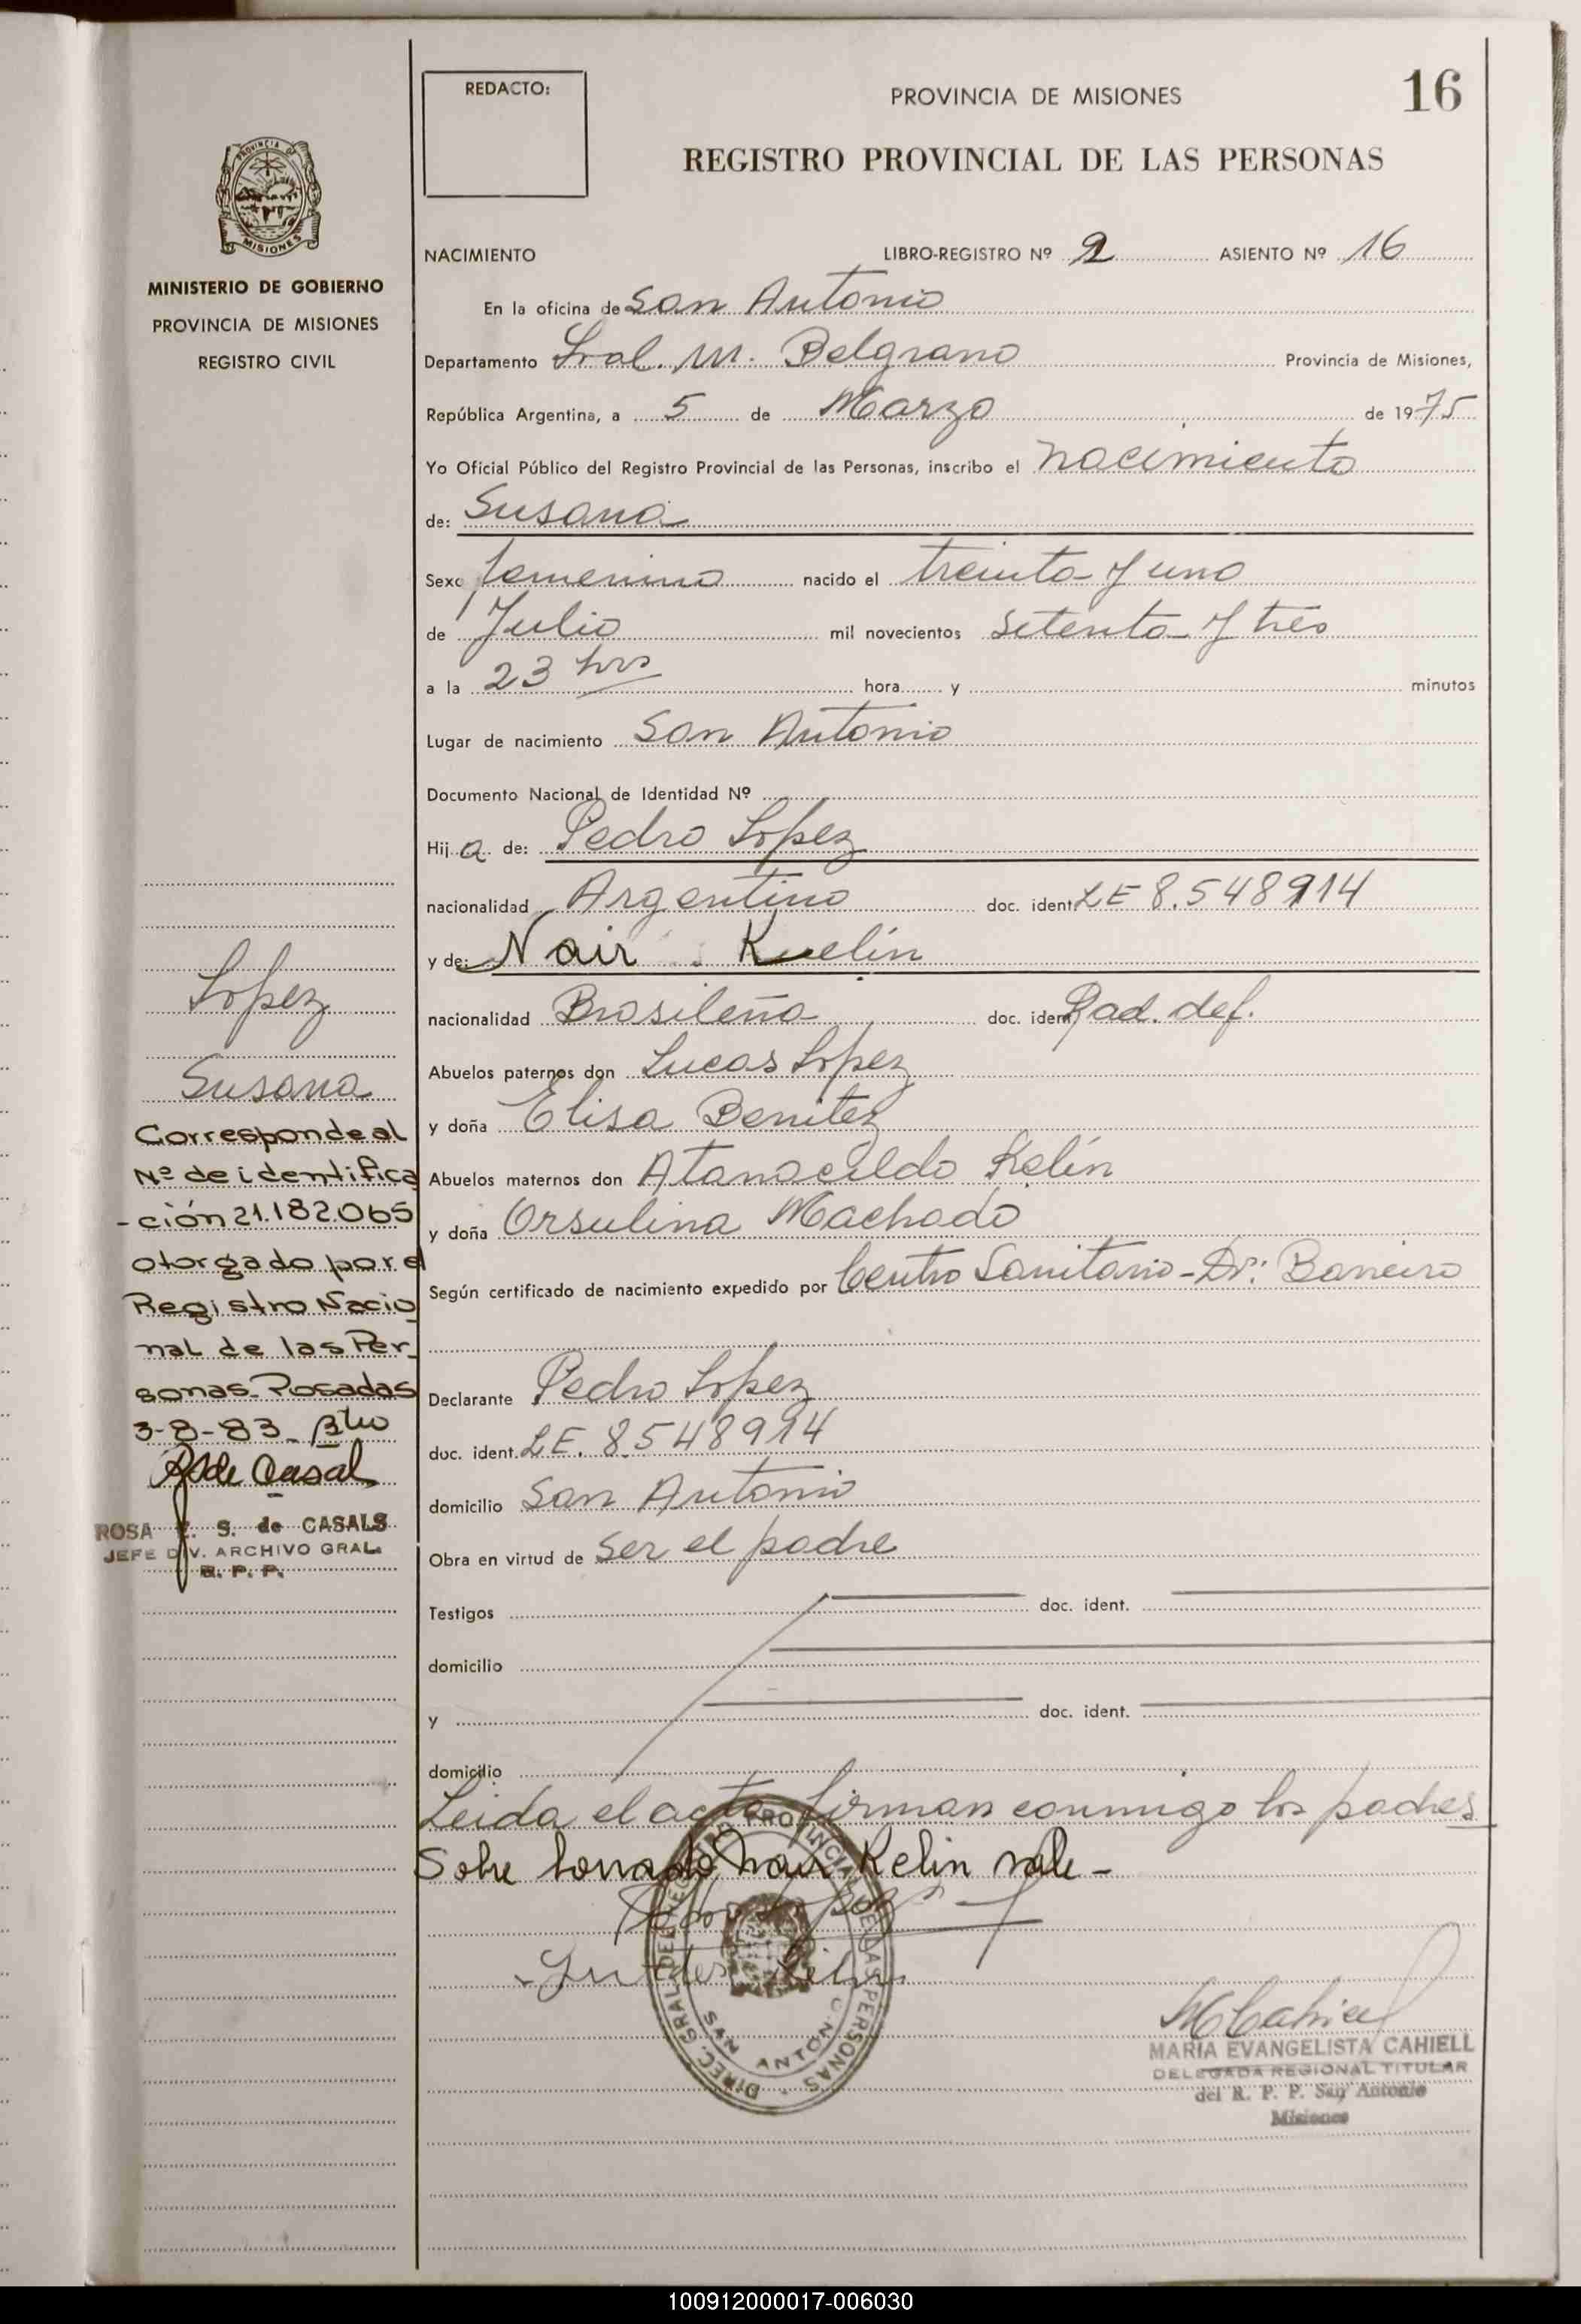 REDACTO:
PROVINCIA DE MISIONES
16
REGISTRO PROVINCIAL DE LAS PERSONAS
PROVINCIA DE
MISIONES
MINISTERIO DE GOBIERNO
PROVINCIA DE MISIONES
REGISTRO CIVIL
NACIMIENTO LIBRO-REGISTRO Nº 2 ASIENTO Nº 16
En la oficina de San Antonio
Departamento Gral. M. Belgrano Provincia de Misiones,
República Argentina, a 5 de Marzo de 1975
Yo Oficial Público del Registro Provincial de las Personas, inscribo el nacimiento
de: Susana
Sexo femenino nacido el treinta y uno
de Julio mil novecientos setenta y tres
a la 23 hrs hora y minutos
Lugar de nacimiento San Antonio
Documento Nacional de Identidad Nº
Hij a de: Pedro Lopez
nacionalidad Argentino doc. ident. LE 8.548914
y de: Nair Kelín
nacionalidad Brasileña doc. ident. Rad. def.
Abuelos paternos don Lucas Lopez
y doña Elisa Benitez
Abuelos maternos don Atanacildo Kelín
y doña Orsulina Machado
Según certificado de nacimiento expedido por Centro Sanitario - Dr: Baneiro
Declarante Pedro Lopez
doc. ident. LE. 8.548914
domicilio San Antonio
Obra en virtud de ser el padre
Testigos doc. ident.
domicilio
y doc. ident.
domicilio
Leida el acta firman conmigo los padres
Sobre borrado Nair Kelin vale -
Lopez
Lopez
Susana
Corresponde al
Nº de identifica
-ción 21.182.065
otorgado por el
Registro Nacio
nal de las Per_
sonas_Posadas
3-8-83_
R S de Casal
ROSA S. de CASALS
JEFE DIV. ARCHIVO GRAL.
R. P. P.
DIREC. GRAL. DEL REG. PROVINCIAL DE LAS PERSONAS
SAN ANTONIO
M Cahiell
MARIA EVANGELISTA CAHIELL
DELEGADA REGIONAL TITULAR
del R. P. P. San Antonio
Misiones
100912000017-006030